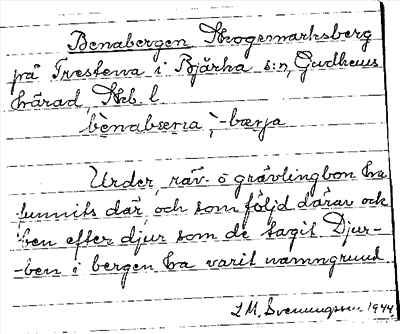 Benabergen Skogsmarksberg
på Trestena i Bjärka s:n, Gudhems
härad, Skb. l
bènabærıa, -bærja
Urder, räv- o grävlingbon ha
funnits där, och som följd därav ock
ben efter djur som de tagit. Djur-
-ben i bergen ha varit namngrund
L M. Svenungsson 1944